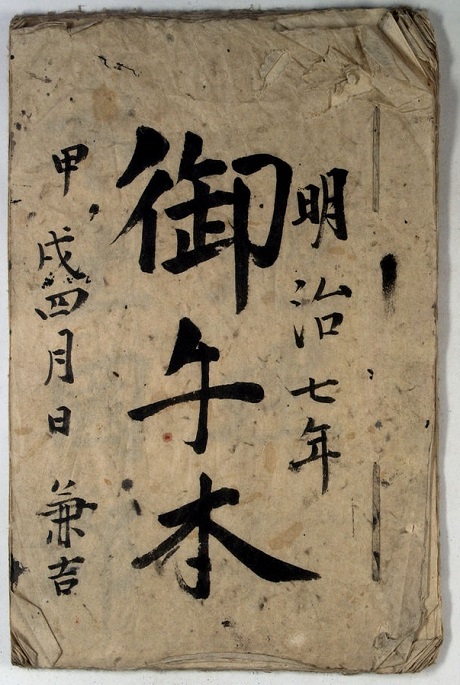 明治七年
御手本
甲戌四月日 兼吉